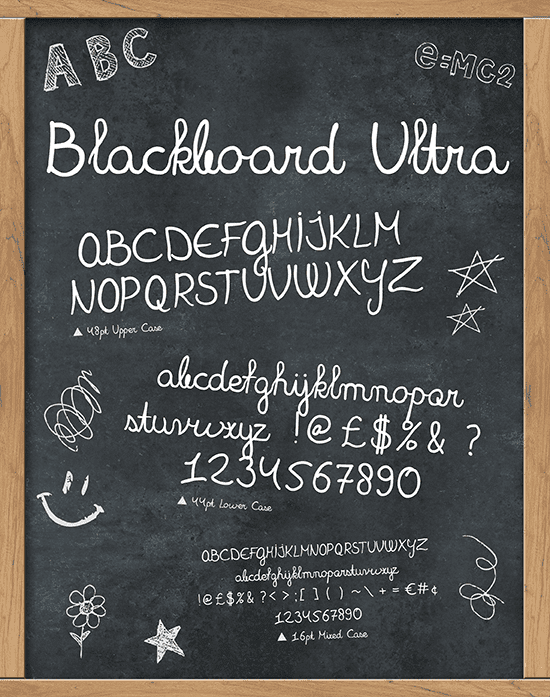 ABC
e=MC2
Blackboard Ultra
ABCDEFGHIJKLM
NOPQRSTUVWXYZ
48pt Upper Case
abcdefghijklmnopqr
stuvwxyz !@£$%& ?
1234567890
44pt Lower Case
ABCDEFGHIJKLMNOPQRSTUVWXYZ
abcdefghijklmnopqrstuvwxyz
!@£$%& ?<>:[ ] ( ) ~ \ + = €#¢
1234567890
16pt Mixed Case